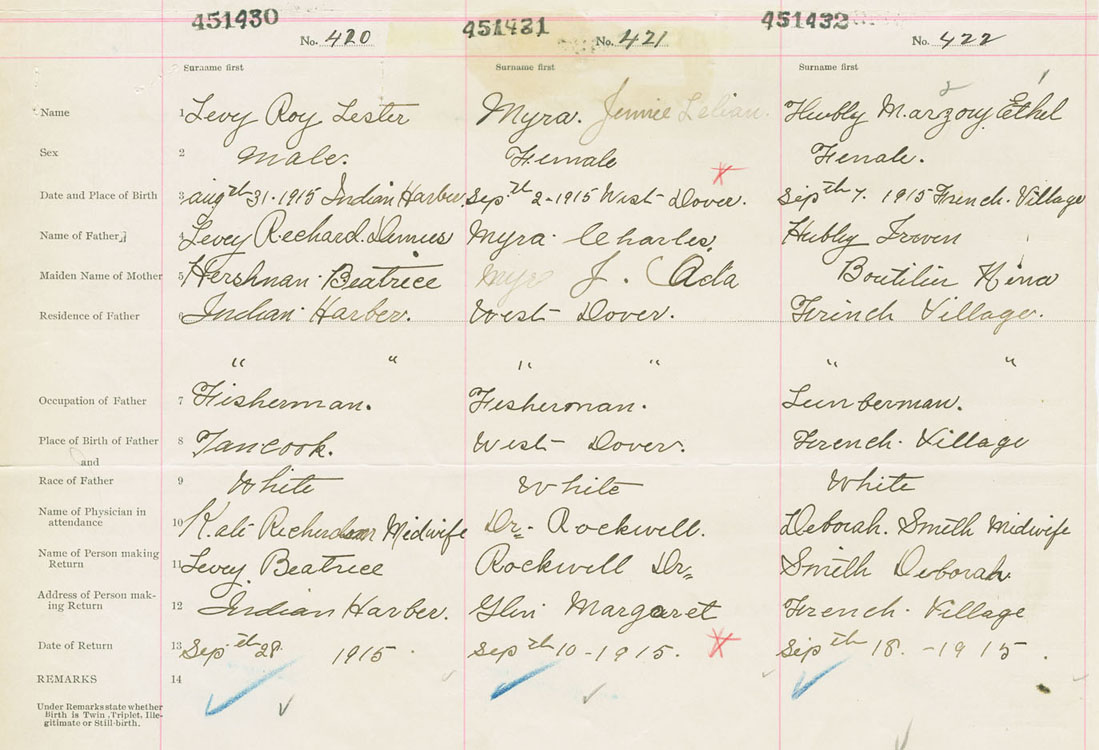 451430 451431 451432
No. 420 No. 421 No. 422
Surname first Surname first Surname first
Name 1 Levy Roy Lester Myra. Jennie Lelian. Hubly Marzory Ethel
Sex 2 Male. Female Female.
Date and Place of Birth 3 aug th 31-1915 Indian Harber, Sep. th 2-1915 West Dover. Sep th 7. 1915 French. Village
Name of Father 4 Levey Richard. Dennies Myra Charles. Hubly Irwen
Maiden Name of Mother 5 Hershman Beatrice Myra J. Ada Boutilier Nina
Residence of Father 6 Indian Harber. West Dover. French Village.
" " " " " "
Occupation of Father 7 Fisherman. Fisherman. Lumberman.
Place of Birth of Father 8 Tancook. West Dover. French. Village
and
Race of Father 9 White White White
Name of Physician in
attendance 10 Kate Richardson Midwife Dr. Rockwell. Deborah. Smith Midwife
Name of Person making
Return 11 Levey Beatrice Rockwell Dr. Smith Deborah
Address of Person mak-
ing Return 12 Indian Harber. Glen Margaret French. Village
Date of Return 13 Sep. th 28. 1915. Sep th 10-1915. Sip th 18. -1915.
REMARKS 14
Under Remarks state whether
Birth is Twin, Triplet, Ille-
gitimate or Still-birth.